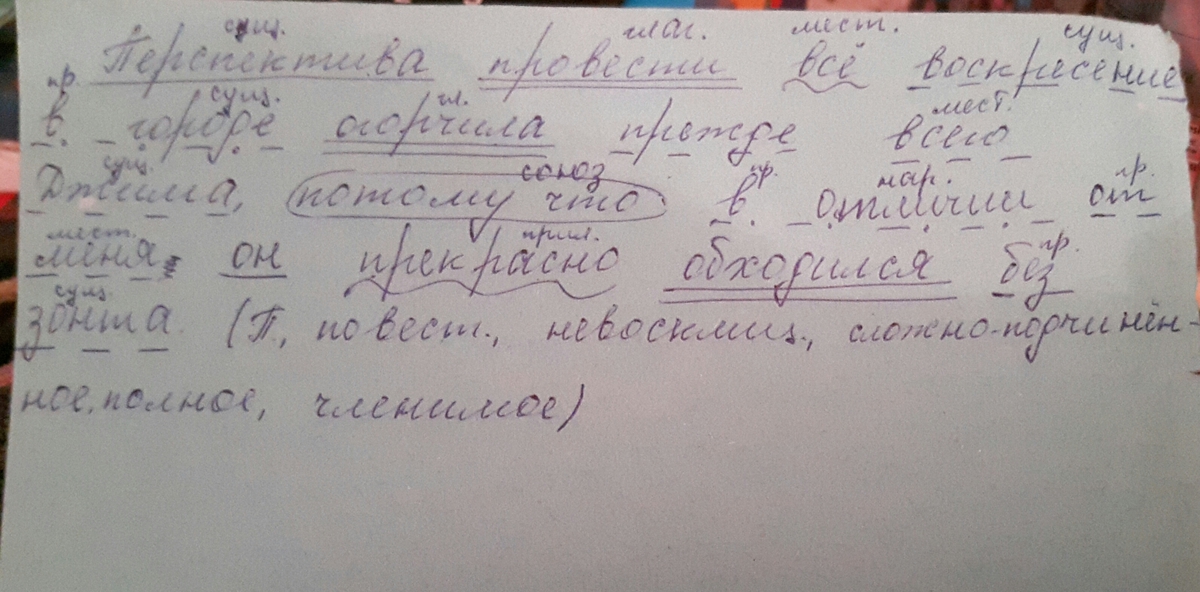 сущ. глаг. мест. сущ.
Перспектива провести всё воскресение
пр. сущ. гл. мест.
в городе огорчила прежде всего
сущ. союз пр. нар. пр.
Джима, потому что в отличии от
мест. прил. пр.
меня, он прекрасно обходился без
сущ.
зонта. (П, повест., невосклиц., сложно-подчинён-
ное, полное, членимое)